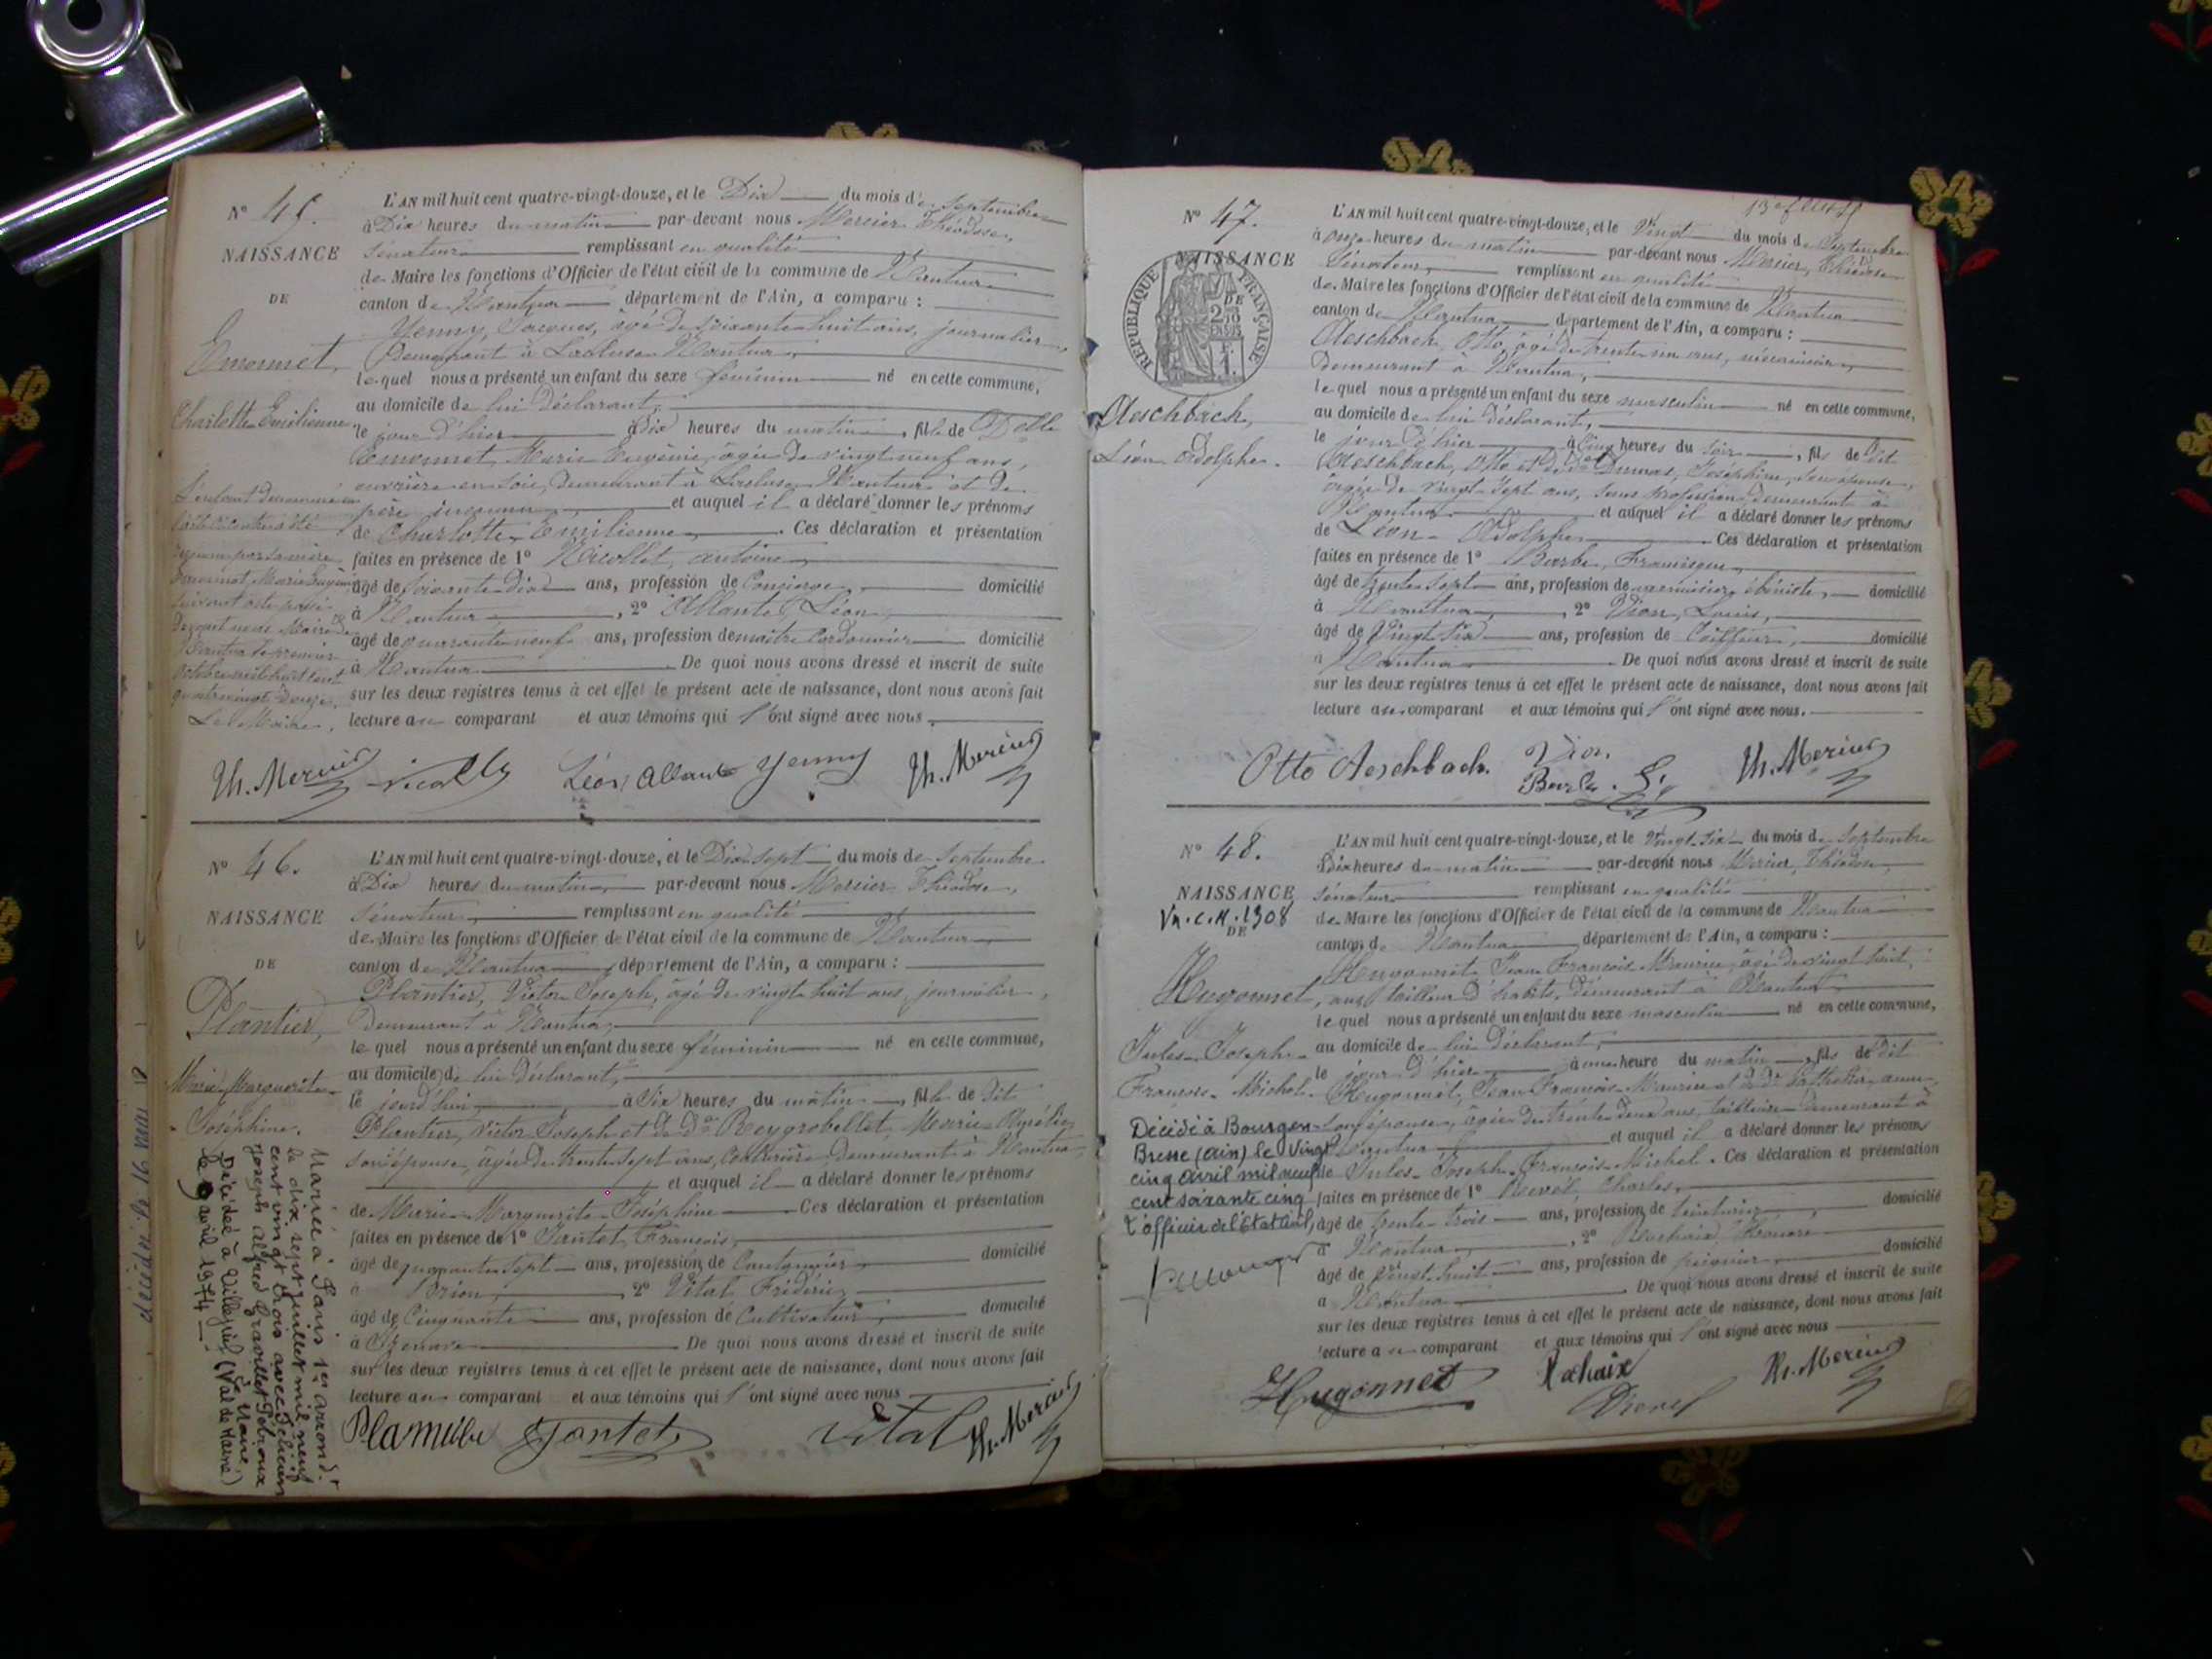 N° 45.
NAISSANCE
DE
Emonnet,
Charlotte Emilienne
L'AN mil huit cent quatre-vingt-douze, et le Dix du mois de Septembre
à Dix heures du matin par-devant nous Mercier Théodose,
Sénateur remplissant en qualité
de Maire les fonctions d'Officier de l'état civil de la commune de Nantua
canton de Nantua département de l'Ain, a comparu :
Yenny, Jacques, âgé de soixante huit ans, journalier,
demeurant à Nantua,
lequel nous a présenté un enfant du sexe féminin né en cette commune,
au domicile de lui déclarant,
le jour d'hier à dix heures du matin, fille de Delle
Emonnet, Marie Eugénie, âgée de vingt neuf ans,
ouvrière en soie, demeurant à Nantua et de
père inconnu, et auquel il a déclaré donner les prénoms
de Charlotte Emilienne. Ces déclaration et présentation
faites en présence de 1° Nicollet, Antoine
âgé de soixante Dix ans, profession de Concierge, domicilié
à Nantua, 2° Allante, Léon,
âgé de quarante neuf ans, profession de maître Cordonnier domicilié
à Nantua. De quoi nous avons dressé et inscrit de suite
sur les deux registres tenus à cet effet le présent acte de naissance, dont nous avons fait
lecture au comparant et aux témoins qui l'ont signé avec nous.
par sa mère
Emonnet, Marie Eugénie
suivant acte
devant nous Maire de
Nantua le premier
Octobre mil huit cent
quatre vingt douze.
Le Maire,
Th. Mercier Léon Allante Yenny Th. Mercier
N° 46.
NAISSANCE
DE
Plantier,
Marie Marguerite
Joséphine.
L'AN mil huit cent quatre-vingt-douze, et le Dix sept du mois de Septembre
à Dix heures du matin, par-devant nous Mercier Théodose,
Sénateur, remplissant en qualité
de Maire les fonctions d'Officier de l'état civil de la commune de Nantua
canton de Nantua, département de l'Ain, a comparu :
Plantier, Victor Joseph, âgé de vingt huit ans, journalier,
demeurant à Nantua,
lequel nous a présenté un enfant du sexe féminin né en cette commune,
au domicile de lui déclarant,
le jourd'hui à six heures du matin, fille de dit
Plantier, Victor Joseph et de De Reygrobellet, Marie
son épouse, âgée de trente sept ans, couturière, demeurant à Nantua,
et auquel il a déclaré donner les prénoms
de Marie Marguerite Joséphine Ces déclaration et présentation
faites en présence de 1° Jantet, François,
âgé de quarante sept ans, profession de Cantonnier domicilié
à Brion, 2° Vital Frédéric
âgé de Cinquante ans, profession de Cultivateur, domicilié
à De quoi nous avons dressé et inscrit de suite
sur les deux registres tenus à cet effet le présent acte de naissance, dont nous avons fait
lecture au comparant et aux témoins qui l'ont signé avec nous
Mariée à Paris arrondt
le dix sept juillet mil neuf
cent vingt trois avec Félicien
Joseph Alfred
Le Maire,
Décédée à Villejuif (Val de Marne)
le 9 avril 1974
Jantet Vital Th. Mercier
N° 47.
NAISSANCE
REPUBLIQUE FRANÇAISE
Aeschbach,
Léon Adolphe.
L'AN mil huit cent quatre-vingt-douze, et le Vingt du mois de Septembre
à onze heures du matin par-devant nous Mercier, Théodose
Sénateur, remplissant en qualité
de Maire les fonctions d'Officier de l'état civil de la commune de Nantua
canton de Nantua département de l'Ain, a comparu :
Aeschbach, Otto, âgé de trente un ans, mécanicien,
demeurant à Nantua,
lequel nous a présenté un enfant du sexe masculin né en cette commune,
au domicile de lui déclarant,
le jour d'hier à cinq heures du soir, fils de dit
Aeschbach, Otto et de De Dumas, Joséphine, son épouse,
âgée de vingt sept ans, sans profession demeurant à
Nantua et auquel il a déclaré donner les prénoms
de Léon Adolphe. Ces déclaration et présentation
faites en présence de 1° Barbe, Francisque,
âgé de trente sept ans, profession de menuisier ébéniste, domicilié
à Nantua, 2° Vion, Louis,
âgé de Vingt six ans, profession de Coiffeur, domicilié
à Nantua. De quoi nous avons dressé et inscrit de suite
sur les deux registres tenus à cet effet le présent acte de naissance, dont nous avons fait
lecture au comparant et aux témoins qui l'ont signé avec nous.
Otto Aeschbach. Vion. Th. Mercier
Barbe.
N° 48.
NAISSANCE
DE
Hugonnet,
Jules Joseph
François Michel.
L'AN mil huit cent quatre-vingt-douze, et le vingt-six du mois de Septembre
à Dix heures du matin par-devant nous Mercier, Théodose,
Sénateur remplissant en qualité
de Maire les fonctions d'Officier de l'état civil de la commune de Nantua
canton de Nantua, département de l'Ain, a comparu :
Hugonnet Jean François Maurice, âgé de vingt huit
ans, tailleur d'habits, demeurant à Nantua
lequel nous a présenté un enfant du sexe masculin né en cette commune,
au domicile de lui déclarant,
le jour d'hier à une heure du matin, fils de dit
Hugonnet, Jean François Maurice et de De
son épouse, âgée de trente deux ans, demeurant à
Nantua et auquel il a déclaré donner les prénoms
de Jules Joseph François Michel. Ces déclaration et présentation
faites en présence de 1° Revel, Charles,
âgé de trente-trois ans, profession de domicilié
à Nantua, 2° Rochaix,
âgé de vingt huit ans, profession de domicilié
à Nantua. De quoi nous avons dressé et inscrit de suite
sur les deux registres tenus à cet effet le présent acte de naissance, dont nous avons fait
lecture au comparant et aux témoins qui l'ont signé avec nous
Décédé à Bourg en
Bresse (Ain) le vingt
cinq avril mil neuf
cent soixante cinq
L'officier de l'Etat Civil,
Hugonnet Rochaix Th. Mercier
Revel